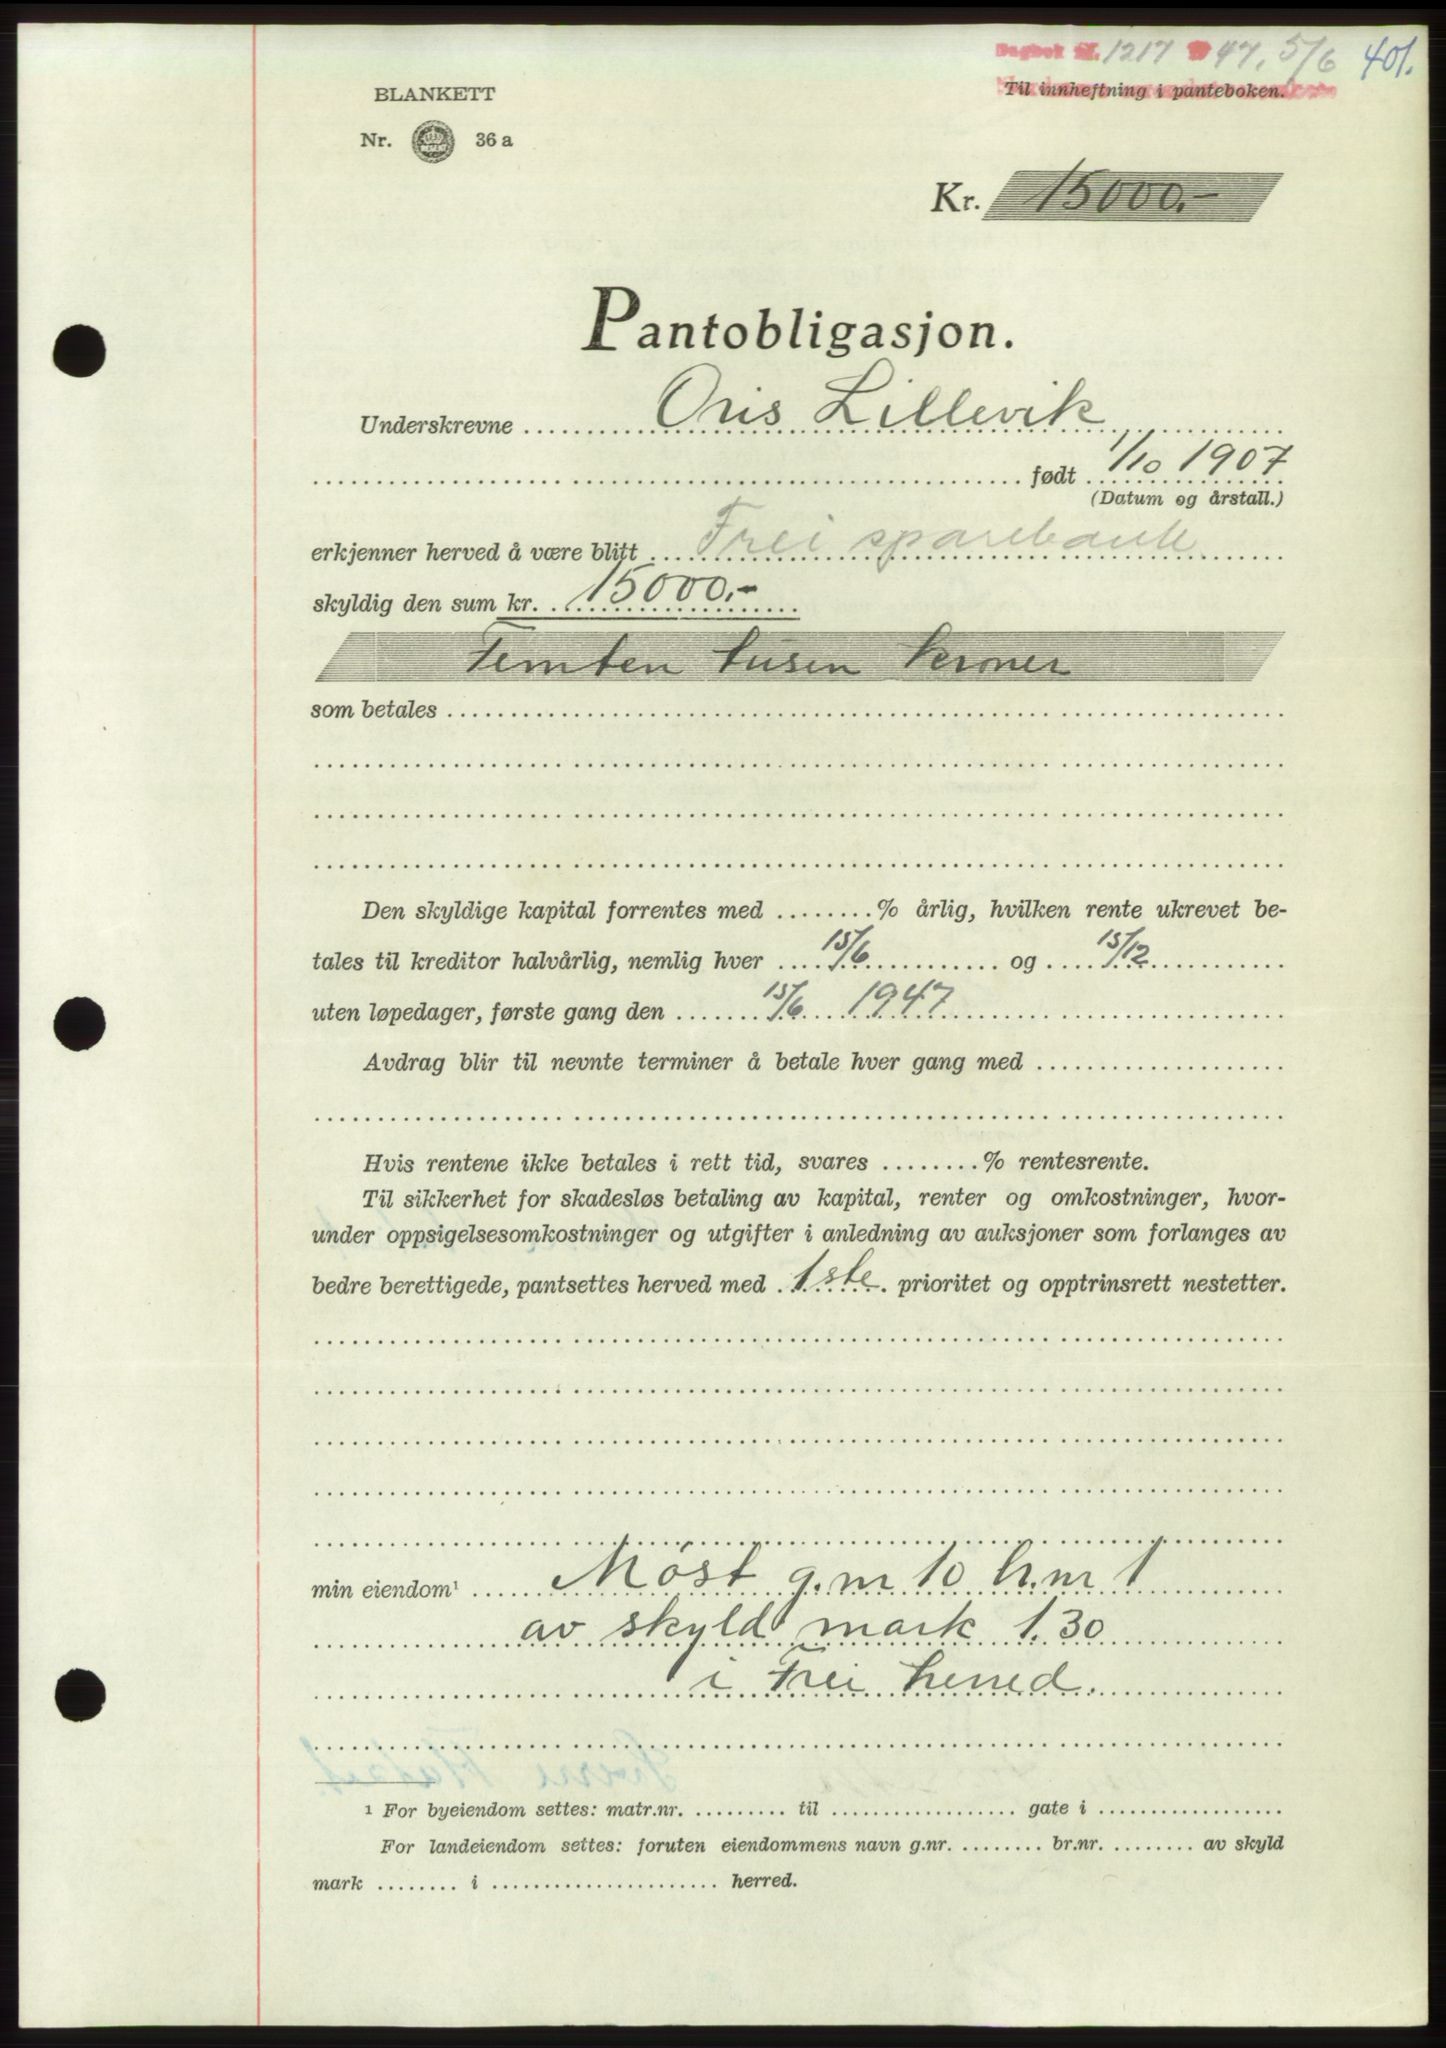 Dagbok nr. 1217 19 47, 5/6 401.
BLANKETT
Til innheftning i panteboken.
Nr. 36 a
Kr. 15000.-
Pantobligasjon.
Underskrevne Oris Lillevik
født 1/10 1907
(Datum og årstall.)
erkjenner herved å være blitt Frei sparebank
skyldig den sum kr. 15000.-
Femten tusen kroner
som betales
Den skyldige kapital forrentes med % årlig, hvilken rente ukrevet be-
tales til kreditor halvårlig, nemlig hver 15/6 og 15/12
uten løpedager, første gang den 15/6 1947
Avdrag blir til nevnte terminer å betale hver gang med
Hvis rentene ikke betales i rett tid, svares % rentesrente.
Til sikkerhet for skadesløs betaling av kapital, renter og omkostninger, hvor-
under oppsigelsesomkostninger og utgifter i anledning av auksjoner som forlanges av
bedre berettigede, pantsettes herved med 1ste prioritet og opptrinsrett nestetter.
min eiendom¹ Møst g.nr 10 br.nr 1
av skyld mark 1.30
i Frei herred.
¹ For byeiendom settes: matr.nr. til gate i
For landeiendom settes: foruten eiendommens navn g.nr. br.nr. av skyld
mark i herred.